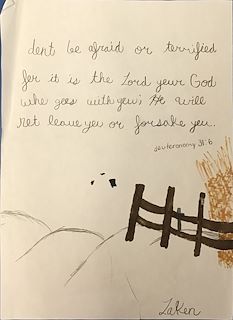 dont be afraid or terrified
for it is the Lord your God
who goes with you; He will
not leave you or forsake you..
deuteronomy 31:6
Zaken